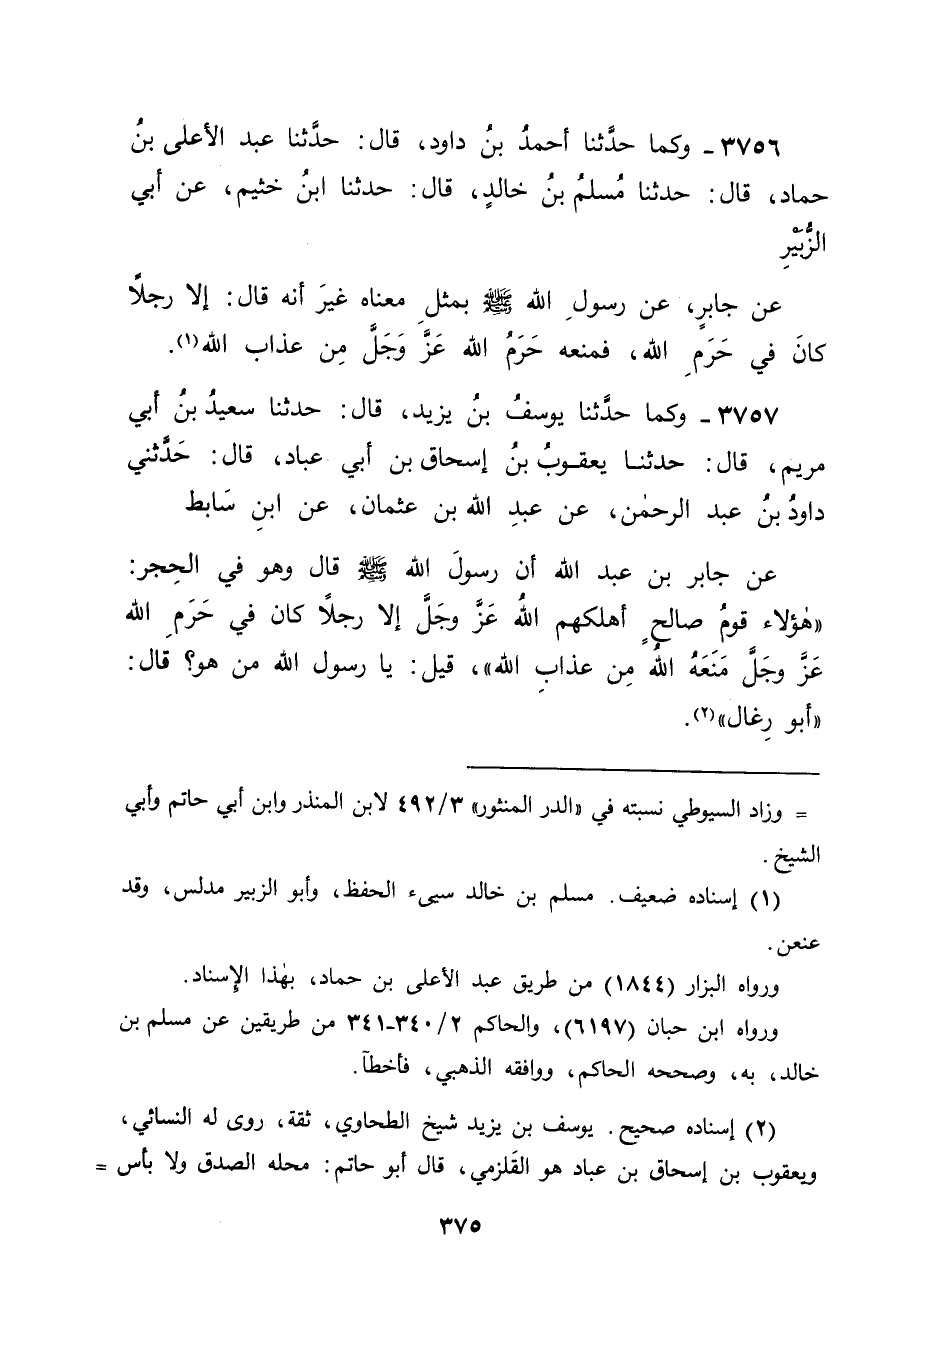 ٣٧٥٦ ـ وكما حدَّثنا أحمدُ بنُ داود، قال: حدَّثنا عبد الأعلى بنُ
حماد، قال: حدثنا مُسلمُ بنُ خالدٍ، قال: حدثنا ابنُ خثيم، عن أبي
الزُّبَيْرِ
عن جابرٍ، عن رسولِ الله ﷺ بمثلِ معناه غيرَ أنه قال: إلا رجلًا
كانَ في حَرَمِ الله، فمنعه حَرَمُ الله عَزَّ وَجَلَّ مِن عذاب الله(١).
٣٧٥٧ ـ وكما حدَّثنا يوسفُ بنُ يزيد، قال: حدثنا سعيدُ بنُ أبي
مريم، قال: حدثنا يعقوبُ بنُ إسحاق بن أبي عباد، قال: حَدَّثني
داودُ بنُ عبد الرحمٰن، عن عبدِ الله بن عثمان، عن ابنِ سَابط
عن جابر بن عبد الله أن رسولَ الله ﷺ قال وهو في الحِجر:
«هٰؤلاء قومُ صالحٍ أهلكهم اللهُ عَزَّ وجَلَّ إلا رجلًا كان في حَرَمِ الله
عَزَّ وجَلَّ مَنَعَهُ اللهُ مِن عذابِ الله»، قيل: يا رسول الله من هو؟ قال:
«أبو رِغال»(٢).
= وزاد السيوطي نسبته في «الدر المنثور» ٤٩٢/٣ لابن المنذر وابن أبي حاتم وأبي
الشيخ.
(١) إسناده ضعيف. مسلم بن خالد سيىء الحفظ، وأبو الزبير مدلس، وقد
عنعن.
ورواه البزار (١٨٤٤) من طريق عبد الأعلى بن حماد، بهٰذا الإِسناد.
ورواه ابن حبان (٦١٩٧)، والحاكم ٣٤٠/٢-٣٤١ من طريقين عن مسلم بن
خالد، به، وصححه الحاكم، ووافقه الذهبي، فأخطآ.
(٢) إسناده صحيح. يوسف بن يزيد شيخ الطحاوي، ثقة، روى له النسائي،
ويعقوب بن إسحاق بن عباد هو القَلزمي، قال أبو حاتم: محله الصدق ولا بأس =
٣٧٥